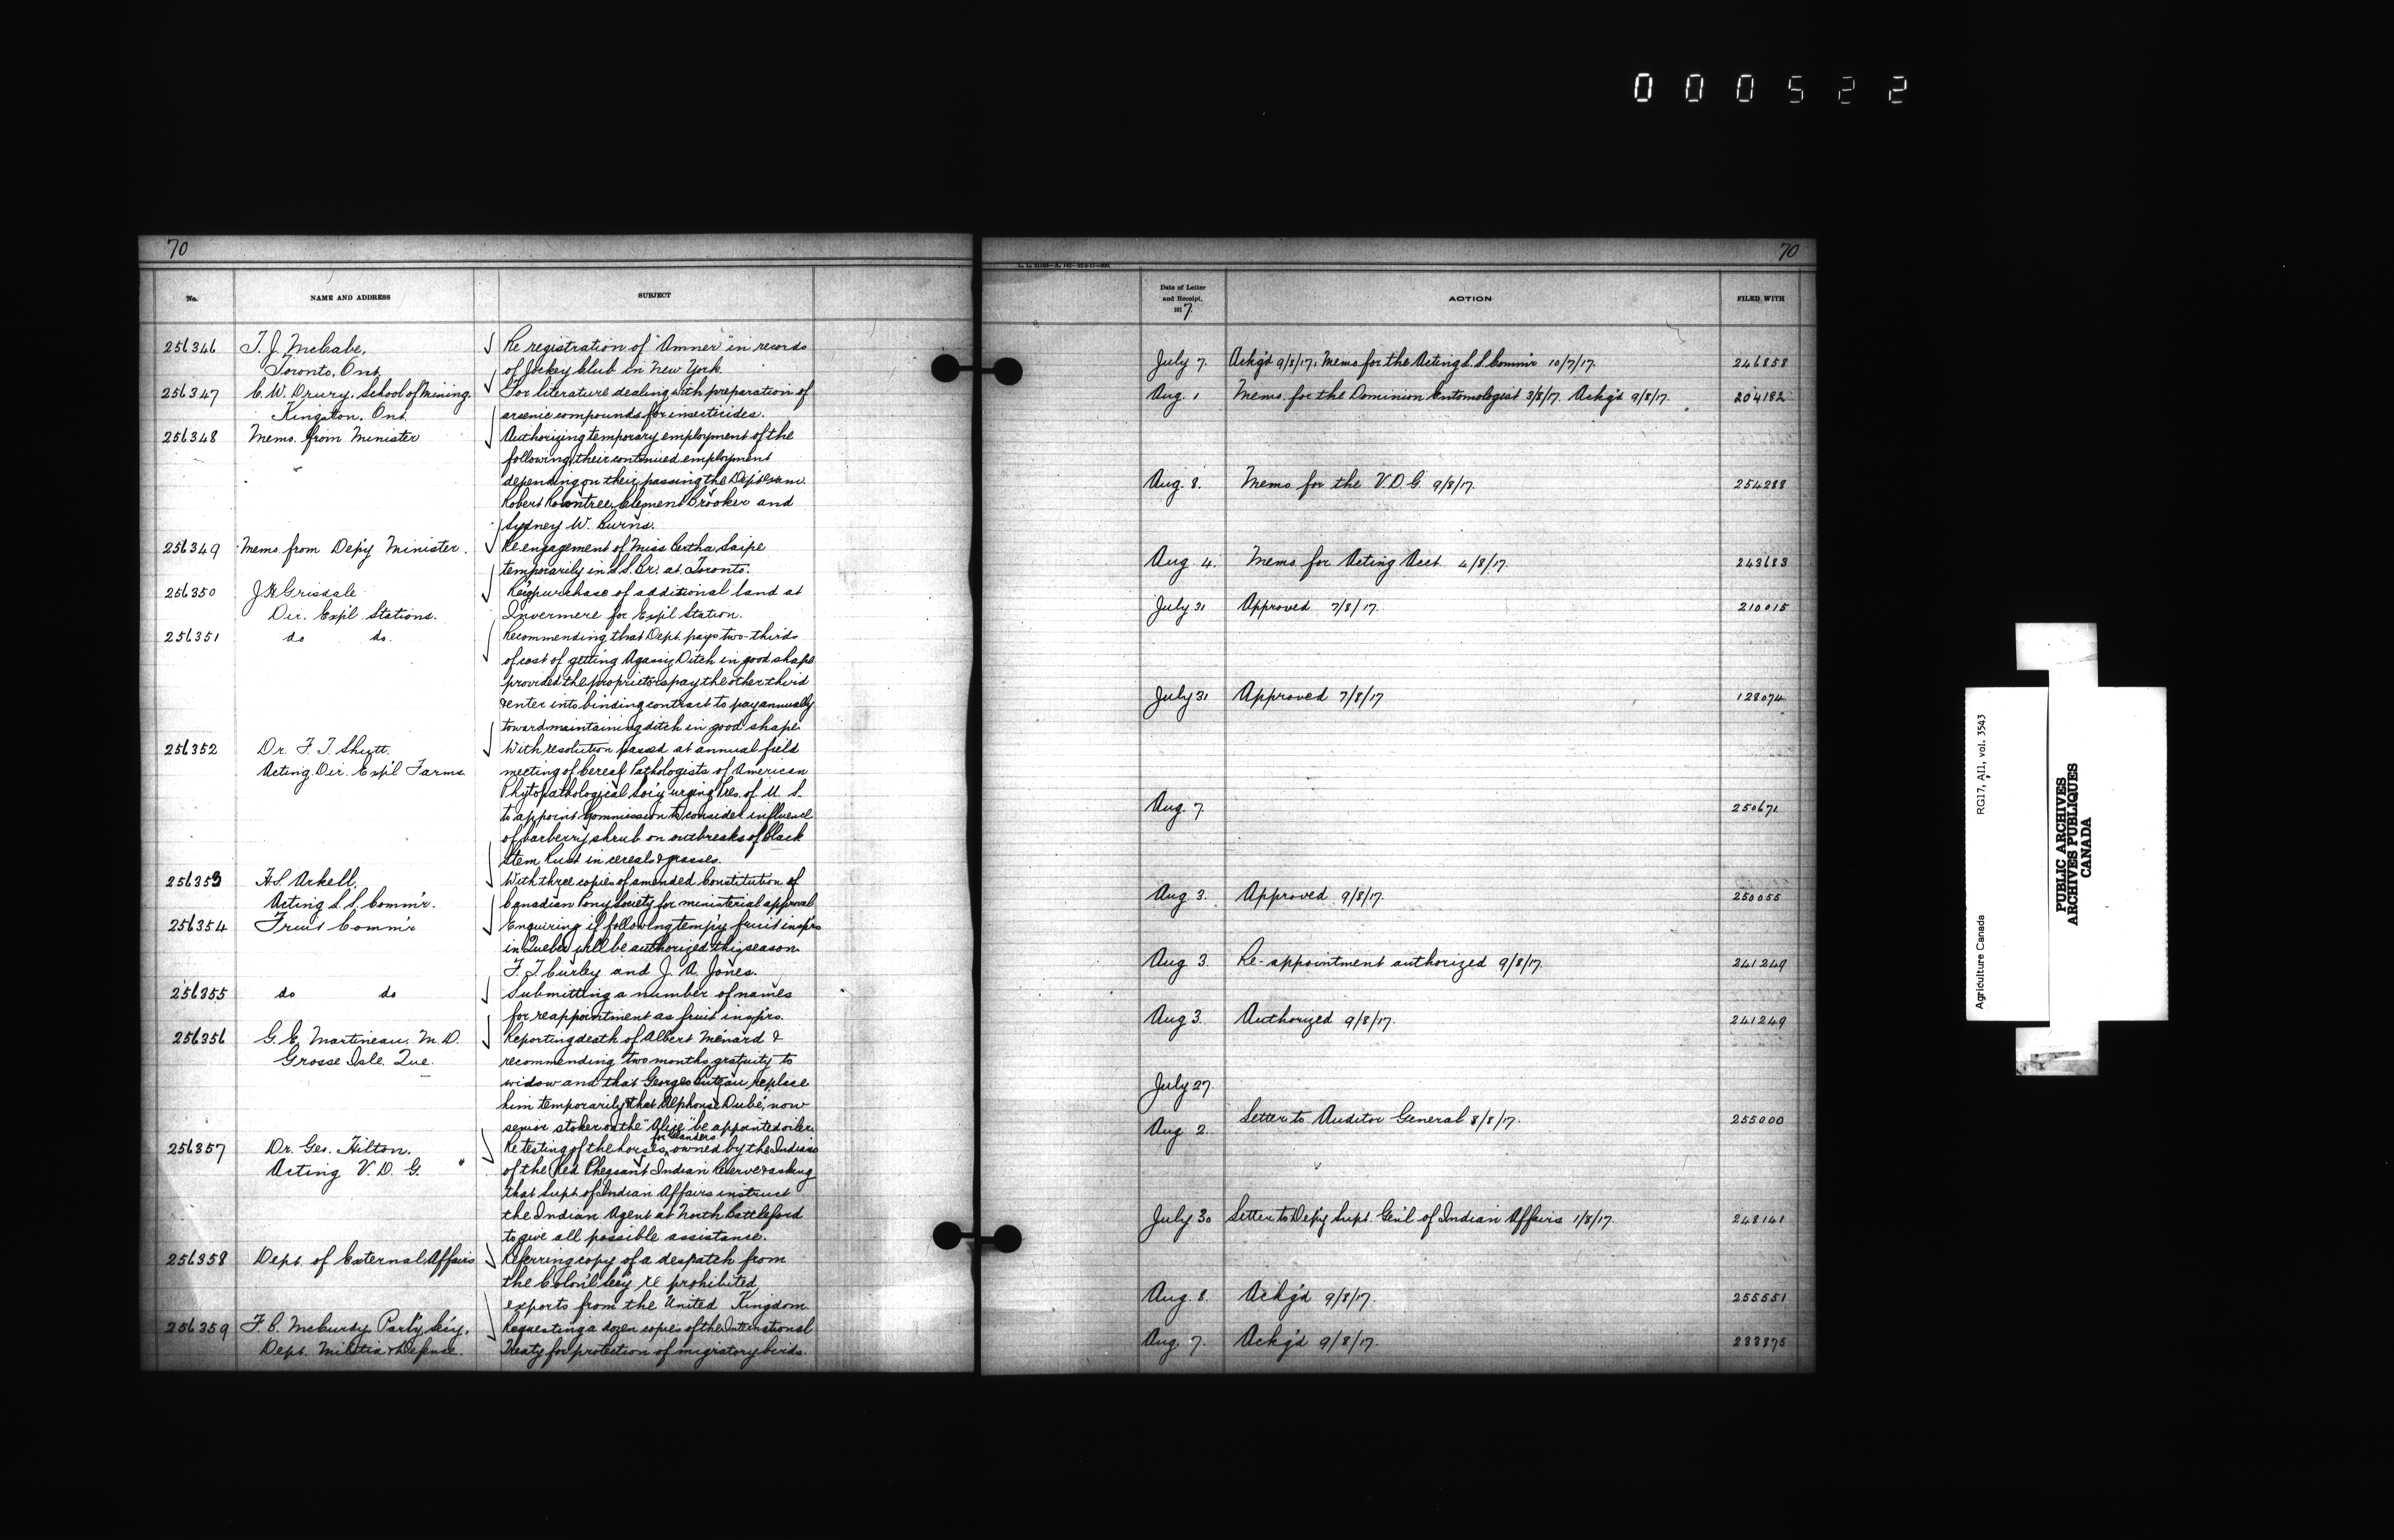 000522
70
No.
NAME AND ADDRESS
SUBJECT
256346
T. J. McCabe,
Toronto, Ont.
Re registration of "Amner" in records
of Jockey Club in New York.
256347
C. W. Drury, School of Mining,
Kingston, Ont.
For literature dealing with preparation of
arsenic compounds for insecticides.
256348
Memo. from Minister
Authorizing temporary employment of the
following, their continued employment
depending on their passing the Dep't exam.
Robert Rowntree, Clement Brooker and
Sydney W. Burns.
256349
Memo. from Dep'y Minister.
Re engagement of Miss Bertha Saipe
temporarily in L.S. Br. at Toronto.
256350
J H Grisdale
Dir. Exp'l Stations.
Re purchase of additional land at
Invermere for Exp'l Station.
256351
do do.
Recommending that Dept. pays two-thirds
of cost of getting Agassiz Ditch in good shape
provided the proprietors pay the other third
& enter into binding contract to pay annually
toward maintaining ditch in good shape.
256352
Dr. F. T. Shutt.
Acting Dir. Exp'l Farms
With resolution passed at annual field
meeting of Cereal Pathologists of American
Phytopathological Soc'y urging Pres. of U. S.
to appoint Commission to consider influence
of barberry shrub on outbreaks of Black
Stem Rust in cereals & grasses.
256353
H.S. Arkell,
Acting L.S. Comm'r.
With three copies of amended Constitution of
Canadian Pony Society for ministerial approval
256354
Fruit Comm'r
Enquiring if following temp'y fruit insp'rs
in Quebec will be authorized this season
F. T. Curley and J. A. Jones.
256355
do do
Submitting a number of names
for reappointment as fruit insp'rs.
256356
G. E. Martineau, M. D.
Grosse Isle. Que.
Reporting death of Albert Ménard &
recommending two months gratuity to
widow and that Georges Buteau replace
him temporarily & that Alphonse Dubé, now
senior stoker on the "Alice" be appointed oiler.
256357
Dr. Geo. Hilton.
Acting V. D. G.
for Glanders
Re testing of the horses, owned by the Indians
of the Red Pheasant Indian Reserve & asking
that Supt. of Indian Affairs instruct
the Indian Agent at North Battleford
to give all possible assistance.
256358
Dept. of External Affairs
Referring copy of a despatch from
the Colon'l Sec'y re prohibited
exports from the United Kingdom.
256359
F. B. McCurdy Parl'y Sec'y,
Dept. Militia & Defence.
Requesting a dozen copies of the International
Treaty for protection of migratory birds.
70
Date of Letter
and Receipt.
191 7
ACTION
FILED WITH
July 7. Ackg'd 9/8/17. Memo for the Acting L.S. Comm'r 10/7/17. 246858
Aug. 1 Memo. for the Dominion Entomologist 3/8/17. Ackg'd 9/8/17. 204182
Aug. 8. Memo for the V. D. G. 9/8/17. 254288
Aug. 4. Memo for Acting Acct. 4/8/17. 243683
July 31 Approved 7/8/17. 210015
July 31 Approved 7/8/17 128074
Aug. 7 250671
Aug. 3. Approved 9/8/17. 250055
Aug 3. Re-appointment authorized 9/8/17. 241249
Aug 3. Authorized 9/8/17. 241249
July 27.
Aug 2. Letter to Auditor General 8/8/17. 255000
July 30 Letter to Dep'y Supt. Gen'l of Indian Affairs 1/8/17. 248141
Aug. 8. Ackg'd 9/8/17. 255551
Aug. 7. Ackg'd 9/8/17. 233875
Agriculture Canada RG17, AII, vol. 3543
PUBLIC ARCHIVES
ARCHIVES PUBLIQUES
CANADA